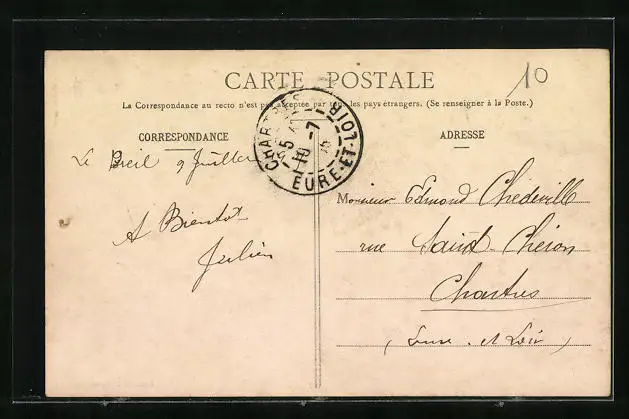 10
CARTE POSTALE
La Correspondance au recto n'est pas acceptée par tous les pays étrangers. (Se renseigner à la Poste.)
CORRESPONDANCE
ADRESSE
CHARTRES
10 -7
EURE-ET-LOIR
Le Breil 9 Juillet
A Bientôt
Julien
Monsieur Edmond Chédeville
rue Saint-Chéron
Chartres
(Eure et Loir)